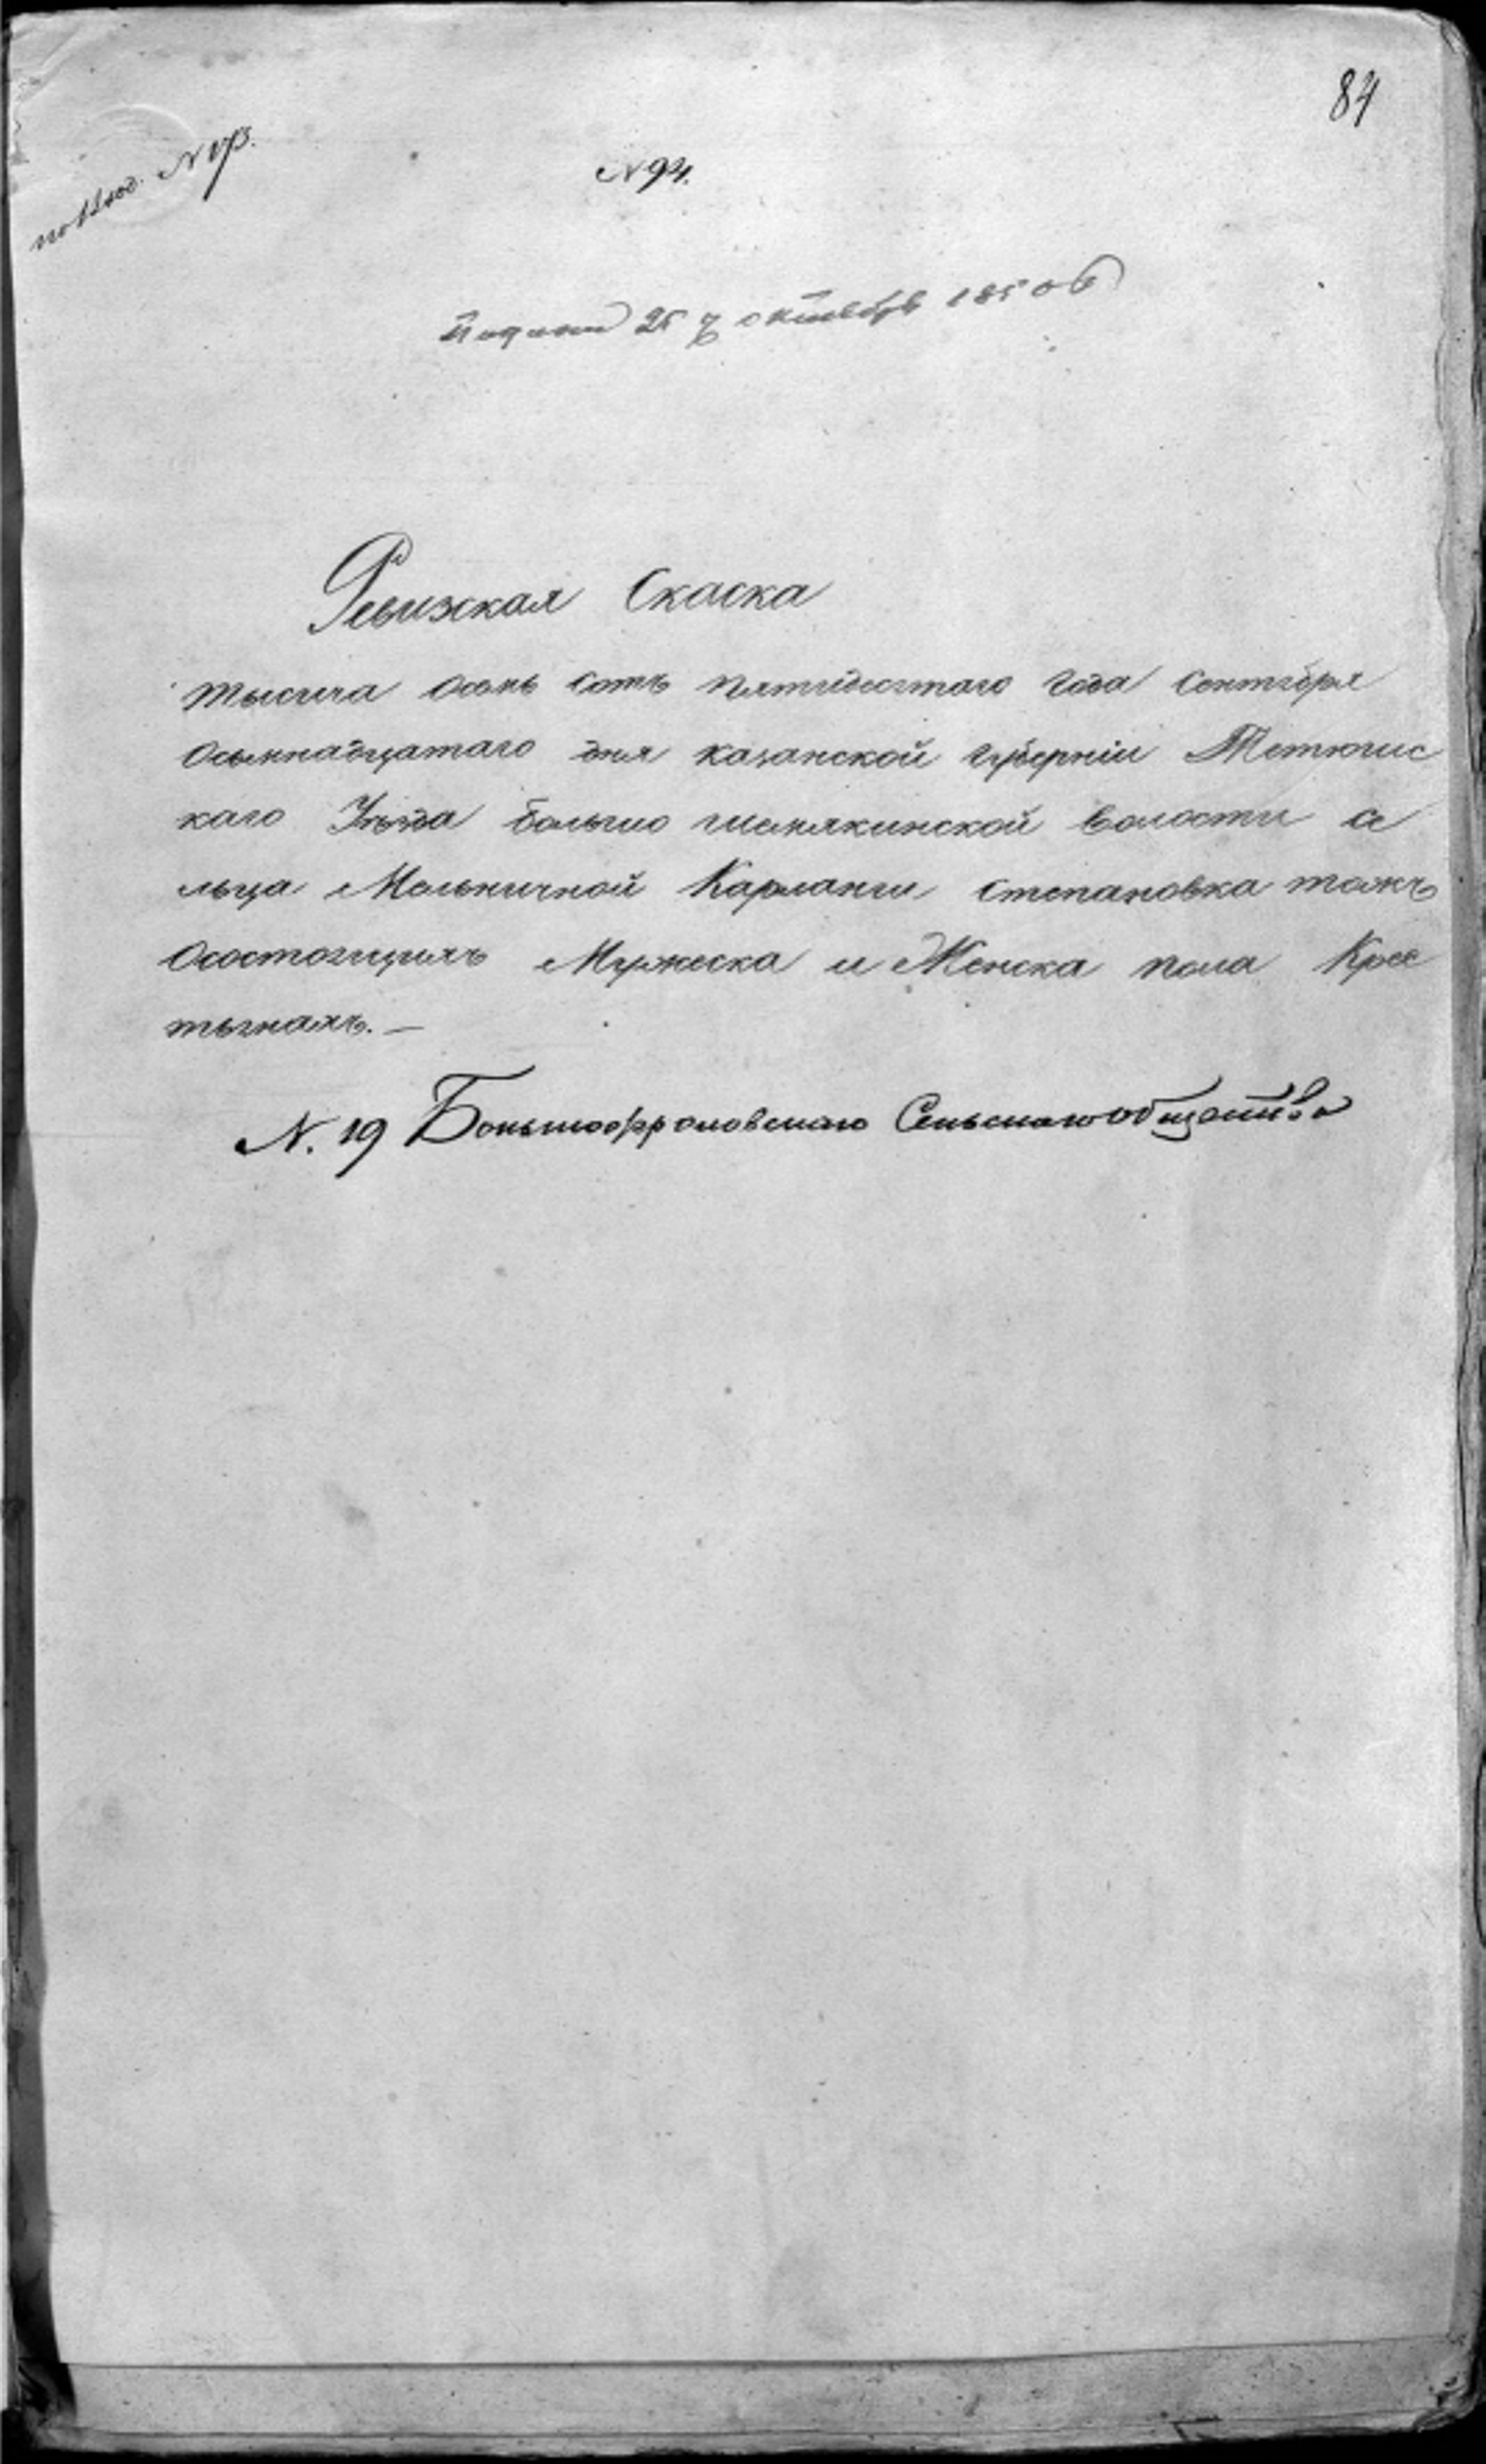 84
N 94.
Подана 25 октября 1850 г
Ревижская Скаска
тысяча осемь сотъ пятидесятаго года сентября
осьмнадцатаго дня казанской губерніи Тетюшс
каго Уѣзда больше шемякинской волости се
льца Мельничной Карланги степановка тожъ
осостоящихъ Мужеска и Женска пола Крес
тьянахъ. —
N. 19 Большефроловскаго Сельскаго общества